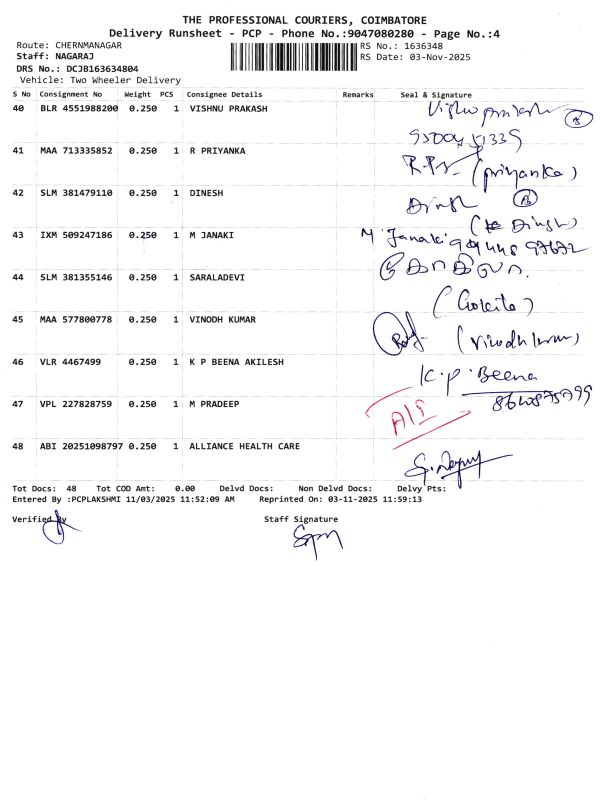 THE PROFESSIONAL COURIERS, COIMBATORE
Delivery Runsheet - PCP - Phone No.:9047080280 - Page No.:4
Route: CHERNMANAGAR
RS No.: 1636348
Staff: NAGARAJ
RS Date: 03-Nov-2025
DRS No.: DCJB163634804
Vehicle: Two Wheeler Delivery
S No Consignment No Weight PCS Consignee Details Remarks Seal & Signature
40 BLR 4551988200 0.250 1 VISHNU PRAKASH
41 MAA 713335852 0.250 1 R PRIYANKA
(priyanka)
42 SLM 381479110 0.250 1 DINESH
43 IXM 509247186 0.250 1 M JANAKI M Janaki
44 SLM 381355146 0.250 1 SARALADEVI
45 MAA 577800778 0.250 1 VINODH KUMAR
46 VLR 4467499 0.250 1 K P BEENA AKILESH
K.P. Beena
47 VPL 227828759 0.250 1 M PRADEEP
48 ABI 20251098797 0.250 1 ALLIANCE HEALTH CARE
Tot Docs: 48 Tot COD Amt: 0.00 Delvd Docs: Non Delvd Docs: Delvy Pts:
Entered By :PCPLAKSHMI 11/03/2025 11:52:09 AM Reprinted On: 03-11-2025 11:59:13
Verified By Staff Signature